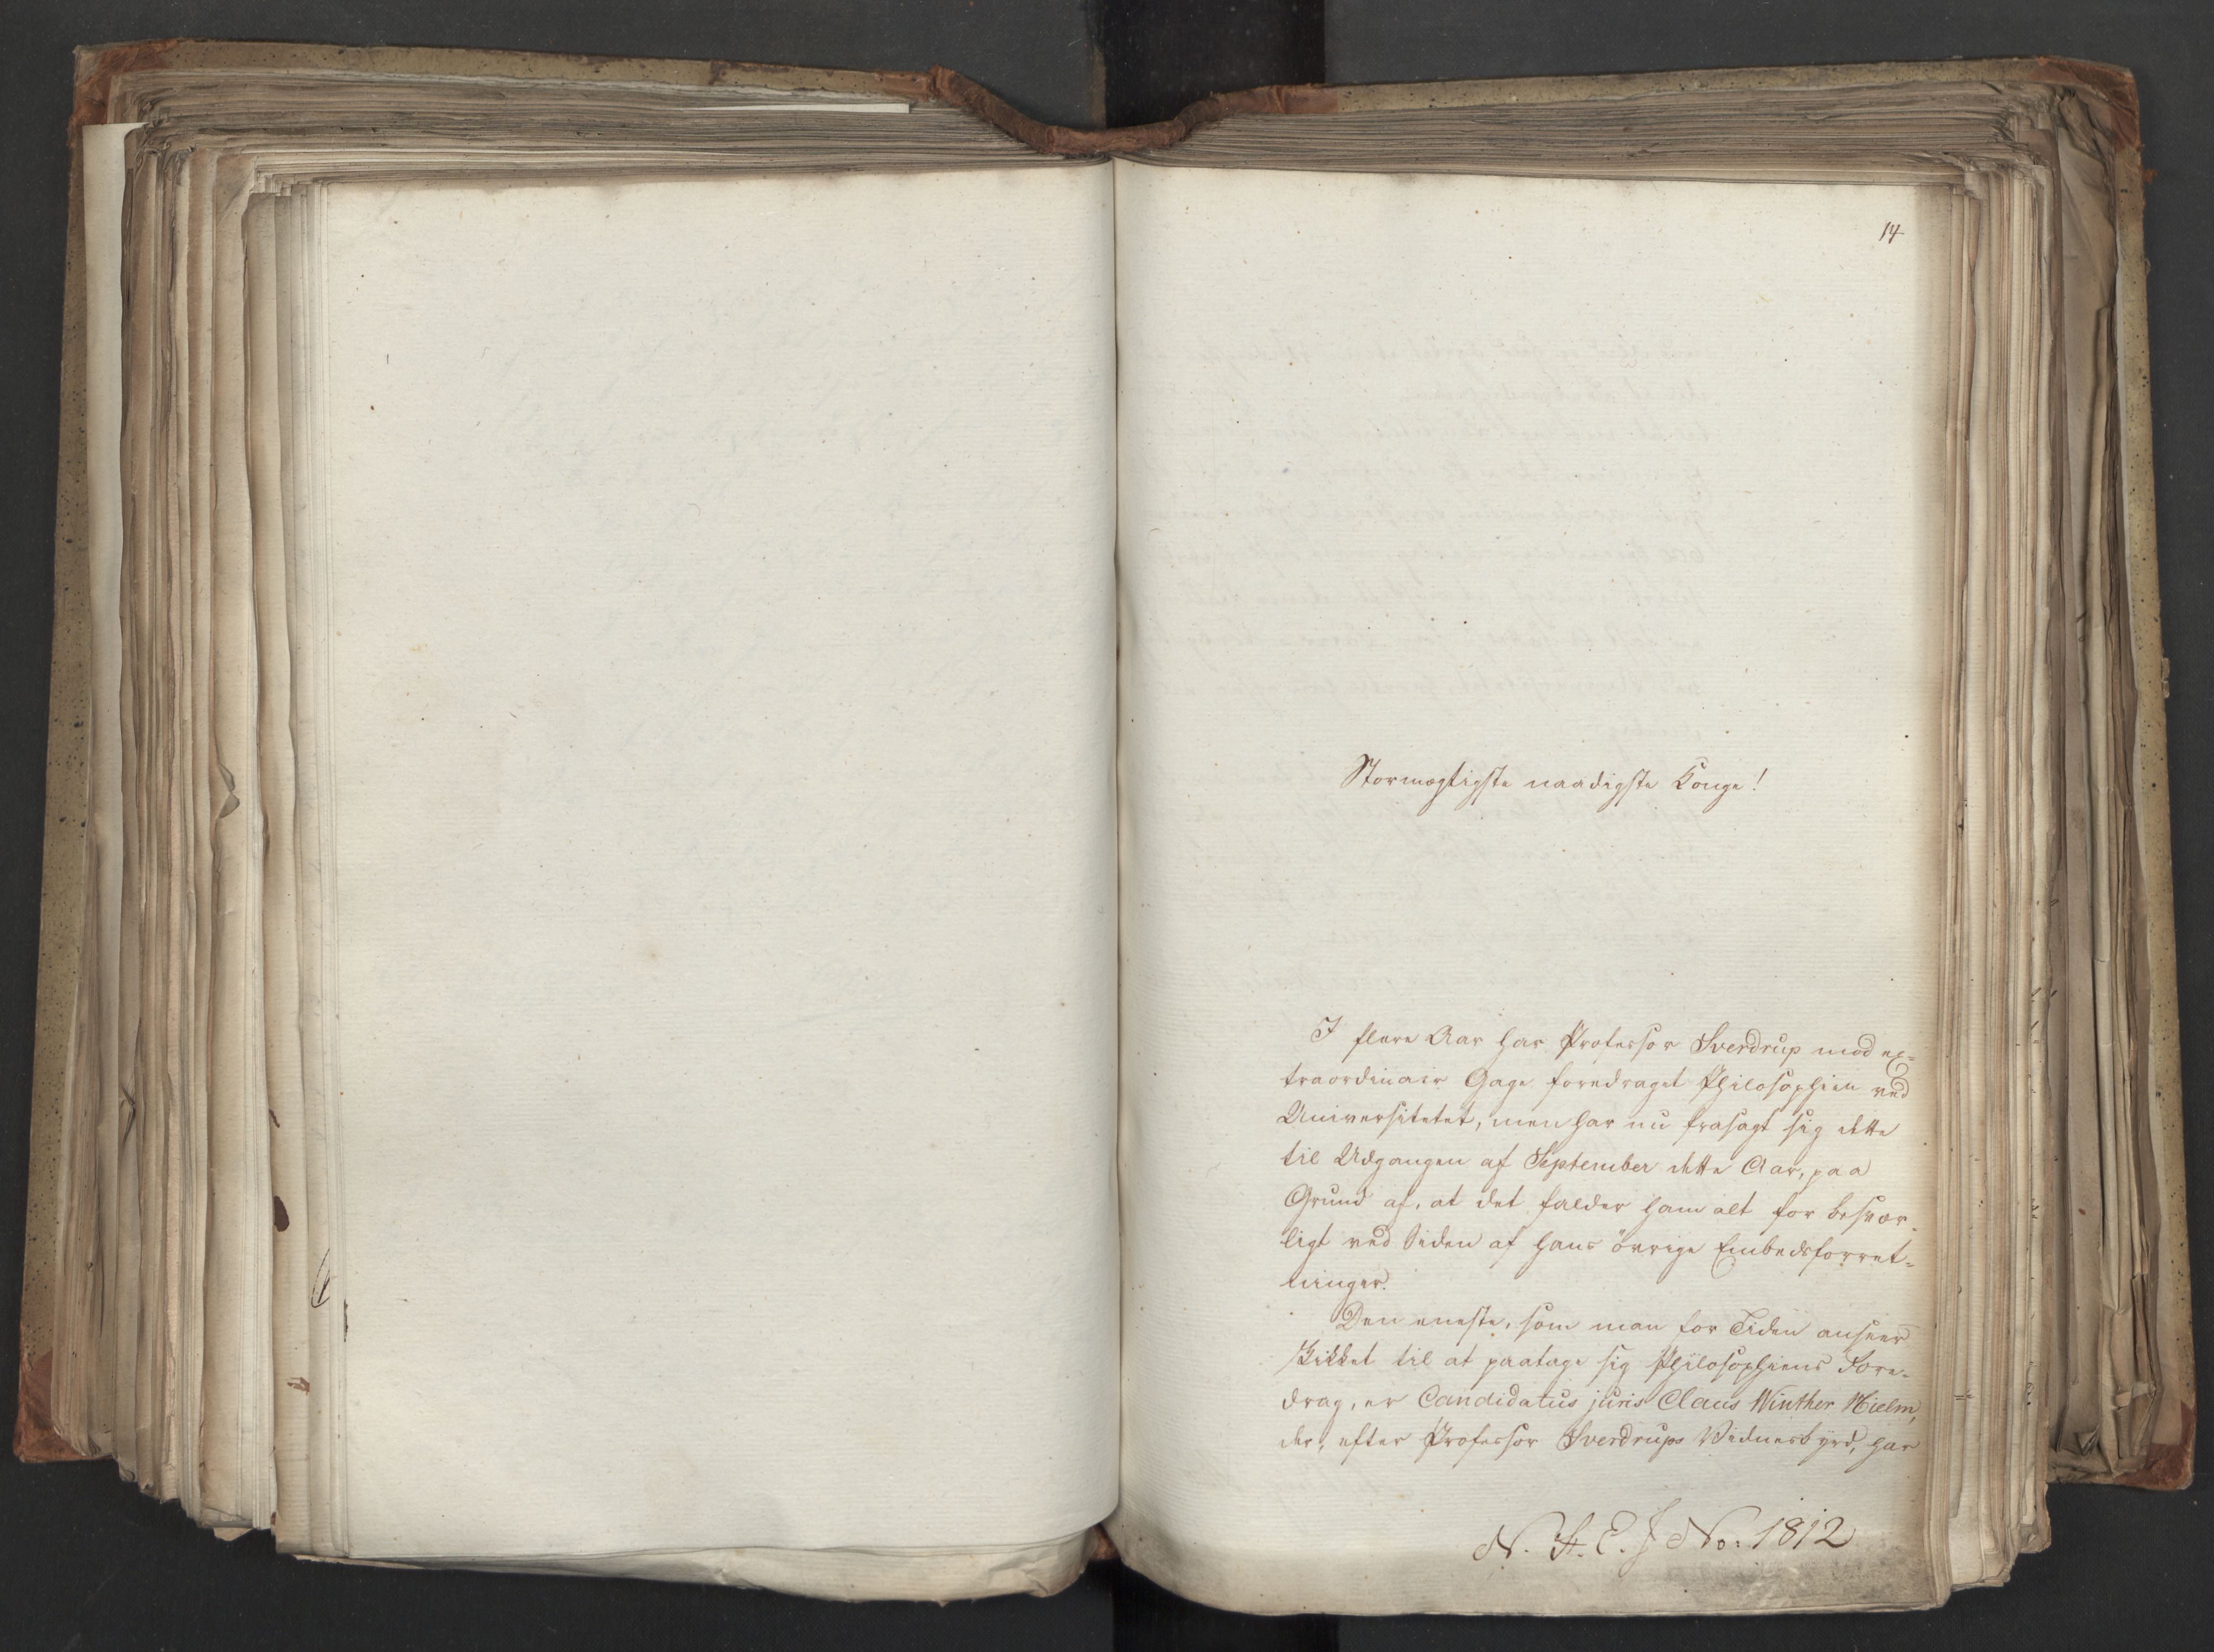 14
Stormægtigste naadigste Konge!
I flere Aar har Professor Sverdrup mod ex=
traordinair Gage foredraget Philosophien ved
Universitetet, men har nu frasagt sig dette
til Udgangen af September dette Aar, paa
Grund af, at det falder ham alt for besvær-
ligt ved Siden af hans övrige Embedsforret=
ninger.
Den eneste, som man for Tiden anseer
skikket til at paatage sig Philosophiens Fore-
drag, er Candidatus juris Claus Winther Hielm,
der, efter Professor Sverdrups Vidnesbyrd, har
N. St. E. J No: 1812